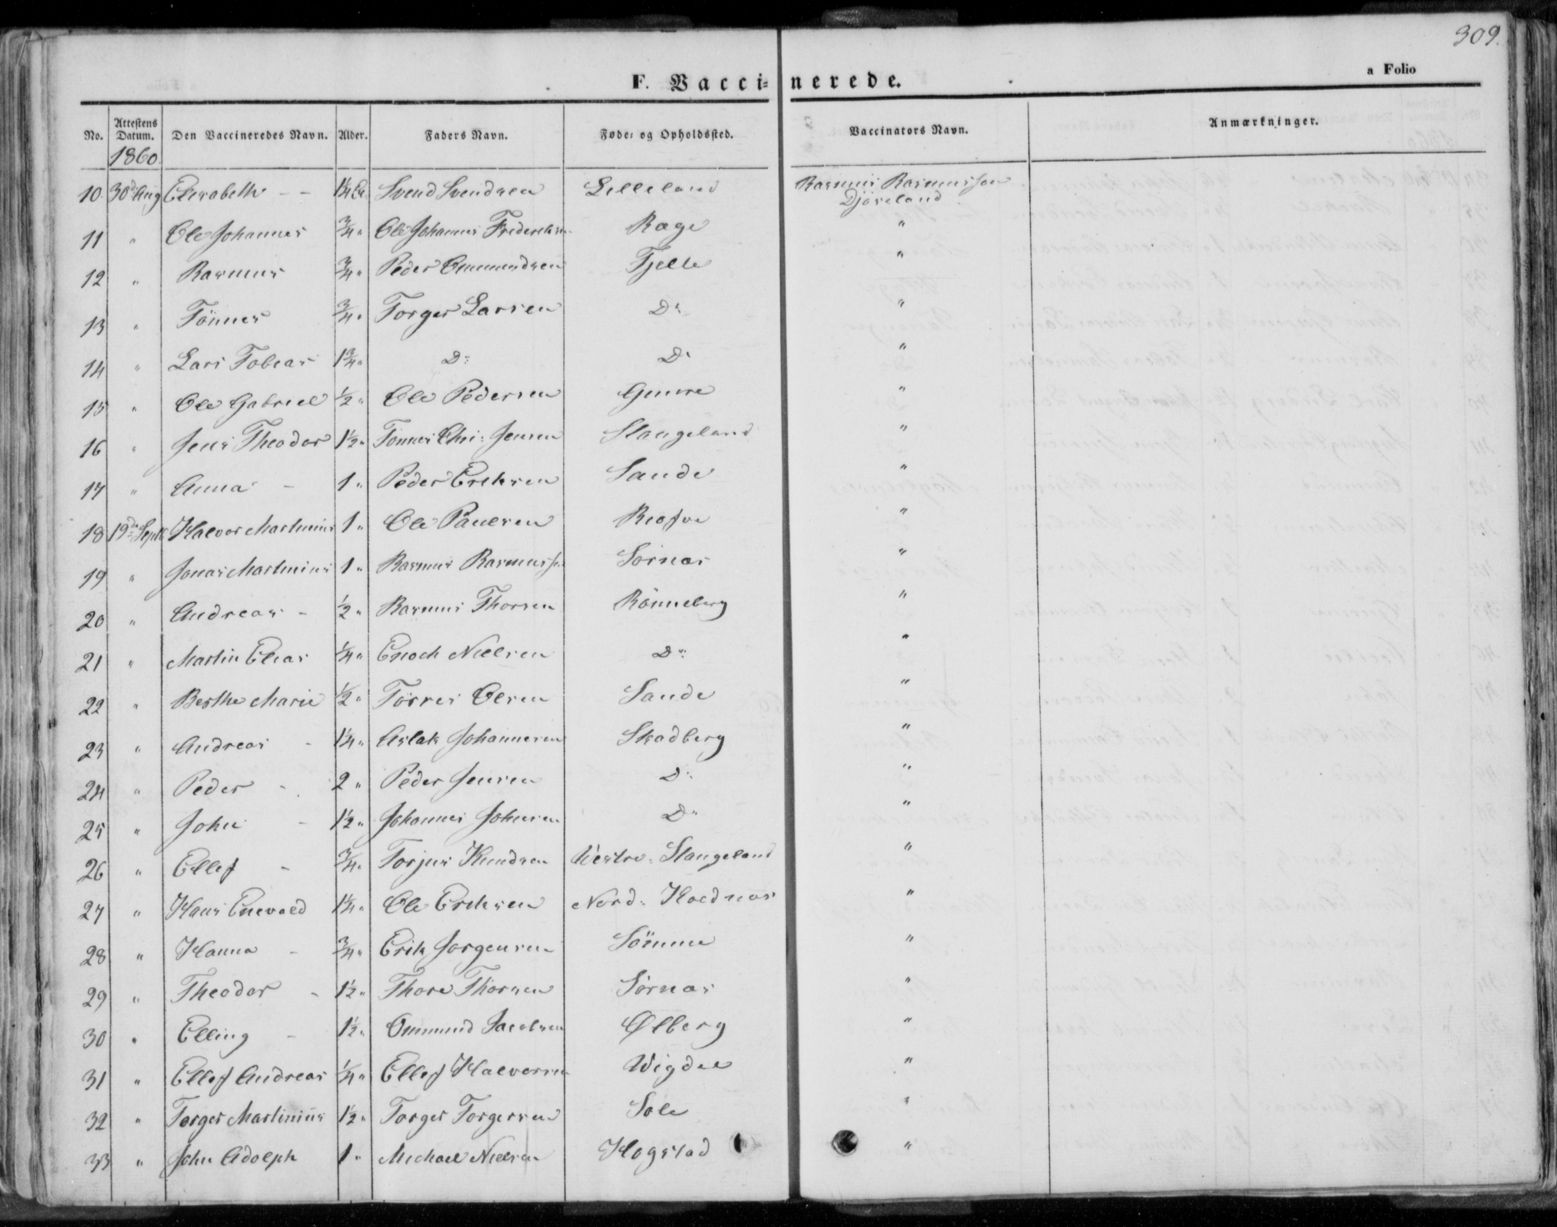 309.
a Folio
F. Vaccinerede.
No. Attestens Datum. Den Vaccineredes Navn. Alder. Faders Navn. Føde- og Opholdssted. Vaccinators Navn. Anmærkninger.
1860
10 30 Aug Elisabeth - - 1¼ Svend Svendsen Lilleland Rasmus Rasmussen
11 " Ole Johannes ¾ " Ole Johannes Frederiksen Røge "
12 " Rasmus ¾ " Peder Ommundsen Tjelle "
13 " Tönnes ¾ " Torger Larsen Do "
14 " Lars Tobias 1¾ " Do Do "
15 " Ole Gabriel ½ " Ole Pedersen Gimre "
16 " Jens Theodor 1½ " Tönnes Chr: Jensen Stangeland "
17 " Anna - 1 " Peder Eriksen Sande "
18 19de Sept Halvor Martinius 1 " Ole Paulsen "
19 " Jonas Martinius 1 " Rasmus Rasmussen Sörnæs "
20 " Andreas - ½ " Rasmus Thorsen Rönneberg "
21 " Martin Elias ¼ " Enoch Nielsen Do "
22 " Berthe Marie ½ " Torres Olsen Sande "
23 " Andreas - 1¼ " Aslak Johannesen Skadberg "
24 " Peder - 2 " Peder Jensen Do "
25 " John - 1½ " Johannes Johnsen Do "
26 " Ellef - ¾ " Torjus Knudsen Vestre Stangeland "
27 " Hans Enevold 1¼ " Ole Eriksen Nord Koldnæs "
28 " Hanna - ¾ " Erik Jorgensen Sömme "
29 " Theodor - 1½ " Thore Thorsen Sörnæs "
30 " Elling - 1½ " Ommund Jacobsen Ølberg "
31 " Ellef Andreas ¼ " Ellef Halvorsen Wigdel "
32 " Torger Martinius 1½ " Torger Torgersen Sole "
33 " John Adolph 1 " Michael Nielsen Hogstad "